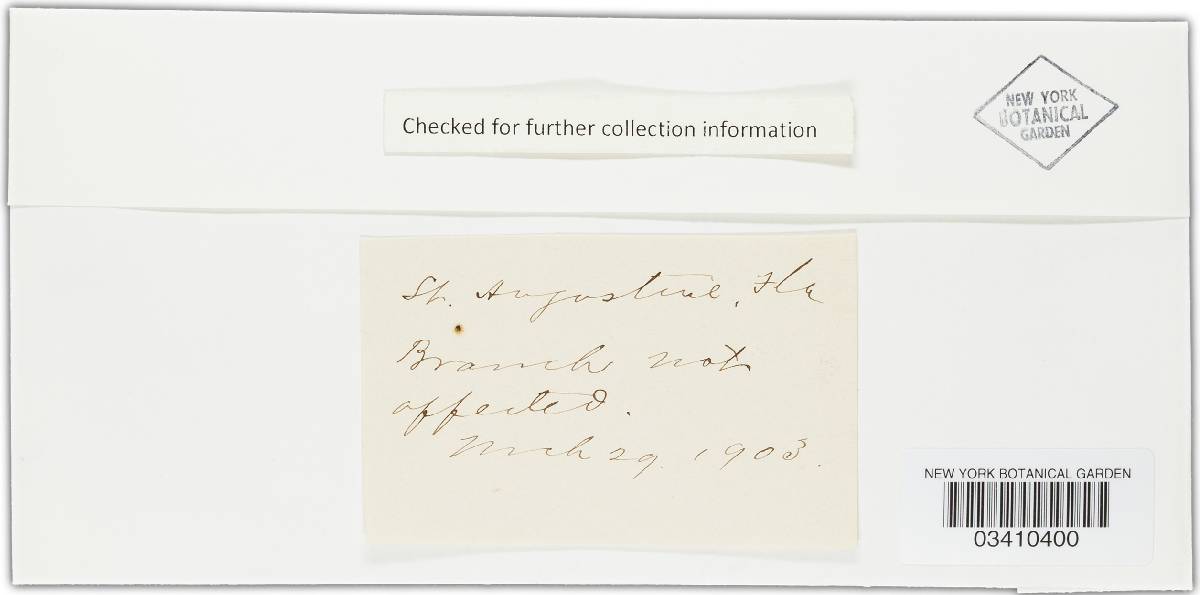 Checked for further collection information
NEW YORK
BOTANICAL
GARDEN
St. Augustine, Fla
Branch not
affected.
Mch 29. 1903.
NEW YORK BOTANICAL GARDEN
03410400